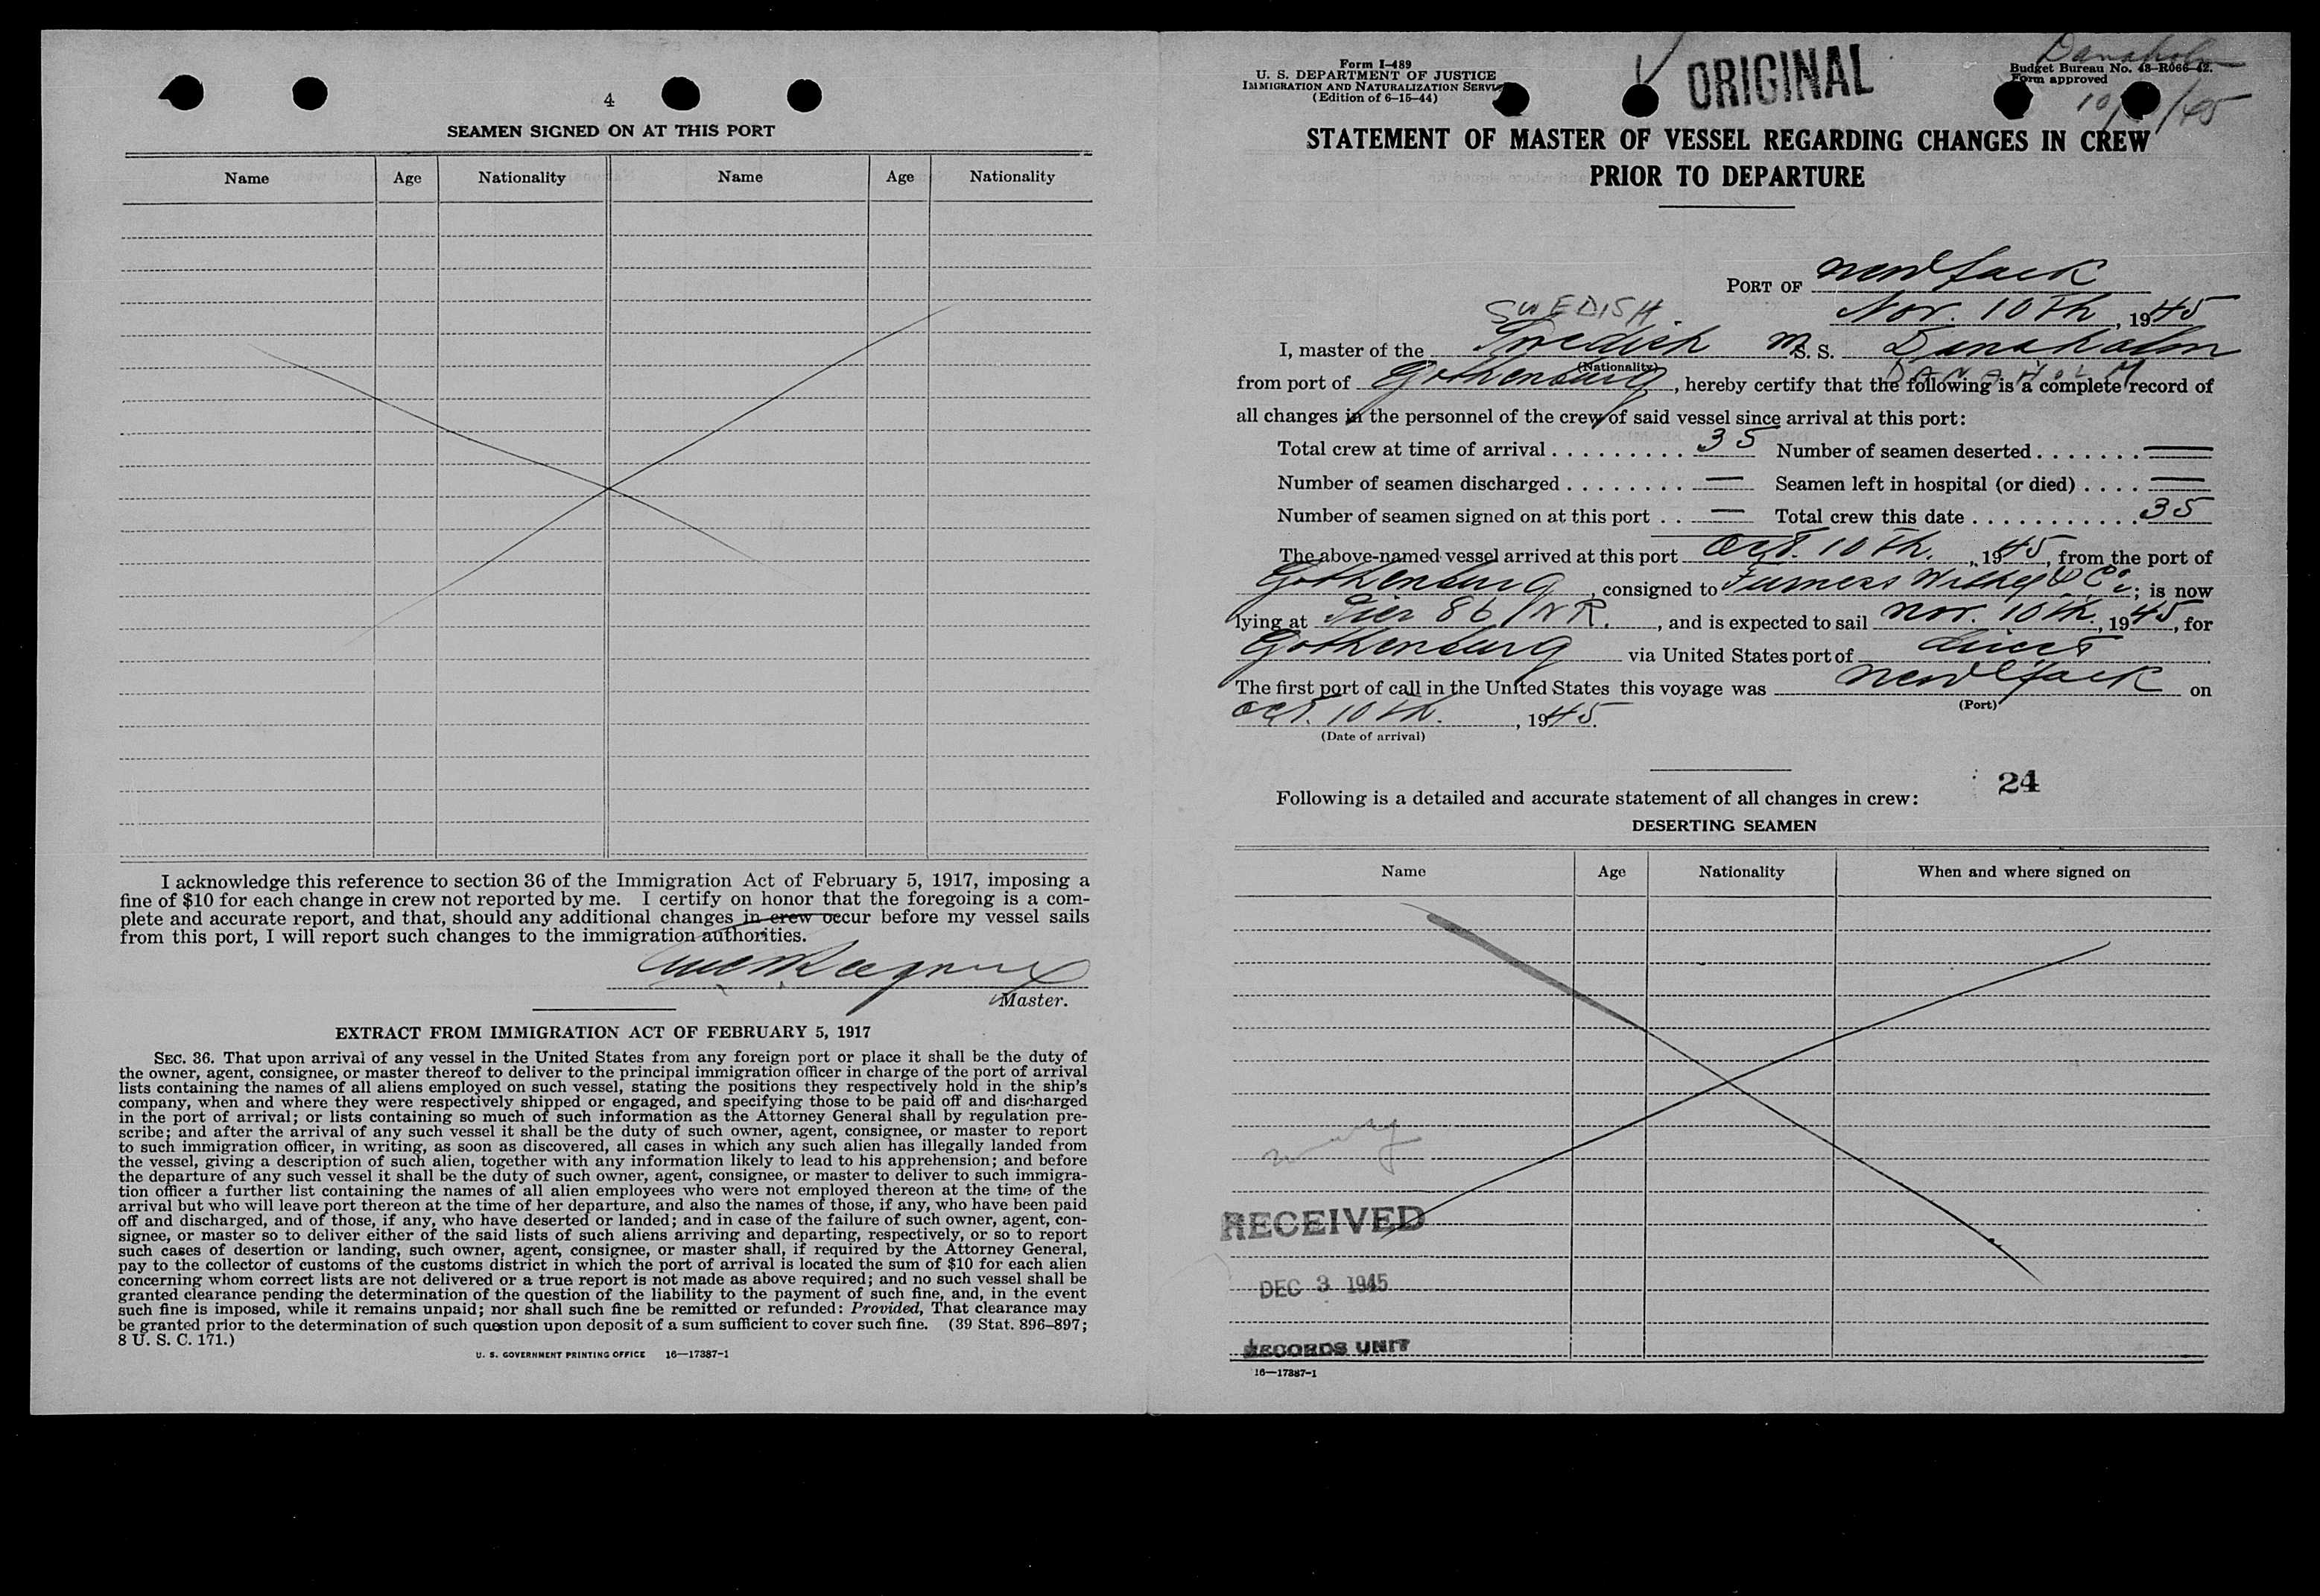 4
SEAMEN SIGNED ON AT THIS PORT
Name Age Nationality Name Age Nationality
I acknowledge this reference to section 36 of the Immigration Act of February 5, 1917, imposing a
fine of $10 for each change in crew not reported by me. I certify on honor that the foregoing is a com-
plete and accurate report, and that, should any additional changes in crew occur before my vessel sails
from this port, I will report such changes to the immigration authorities.
Master.
EXTRACT FROM IMMIGRATION ACT OF FEBRUARY 5, 1917
SEC. 36. That upon arrival of any vessel in the United States from any foreign port or place it shall be the duty of
the owner, agent, consignee, or master thereof to deliver to the principal immigration officer in charge of the port of arrival
lists containing the names of all aliens employed on such vessel, stating the positions they respectively hold in the ship's
company, when and where they were respectively shipped or engaged, and specifying those to be paid off and discharged
in the port of arrival; or lists containing so much of such information as the Attorney General shall by regulation pre-
scribe; and after the arrival of any such vessel it shall be the duty of such owner, agent, consignee, or master to report
to such immigration officer, in writing, as soon as discovered, all cases in which any such alien has illegally landed from
the vessel, giving a description of such alien, together with any information likely to lead to his apprehension; and before
the departure of any such vessel it shall be the duty of such owner, agent, consignee, or master to deliver to such immigra-
tion officer a further list containing the names of all alien employees who were not employed thereon at the time of the
arrival but who will leave port thereon at the time of her departure, and also the names of those, if any, who have been paid
off and discharged, and of those, if any, who have deserted or landed; and in case of the failure of such owner, agent, con-
signee, or master so to deliver either of the said lists of such aliens arriving and departing, respectively, or so to report
such cases of desertion or landing, such owner, agent, consignee, or master shall, if required by the Attorney General,
pay to the collector of customs of the customs district in which the port of arrival is located the sum of $10 for each alien
concerning whom correct lists are not delivered or a true report is not made as above required; and no such vessel shall be
granted clearance pending the determination of the question of the liability to the payment of such fine, and, in the event
such fine is imposed, while it remains unpaid; nor shall such fine be remitted or refunded: Provided, That clearance may
be granted prior to the determination of such question upon deposit of a sum sufficient to cover such fine. (39 Stat. 896–897;
8 U. S. C. 171.)
U. S. GOVERNMENT PRINTING OFFICE 16—17387-1
Form I-489
U. S. DEPARTMENT OF JUSTICE
IMMIGRATION AND NATURALIZATION SERVICE
(Edition of 6-15-44)
ORIGINAL
Danaholm
Budget Bureau No. 43-R066-42.
Form approved
10/ /45
STATEMENT OF MASTER OF VESSEL REGARDING CHANGES IN CREW
PRIOR TO DEPARTURE
PORT OF New York
Nov. 10th, 1945
SWEDISH
I, master of the Swedish M. S. S. Danaholm
(Nationality) DANAHOLM
from port of Gothenburg, hereby certify that the following is a complete record of
all changes in the personnel of the crew of said vessel since arrival at this port:
Total crew at time of arrival 35 Number of seamen deserted —
Number of seamen discharged — Seamen left in hospital (or died) —
Number of seamen signed on at this port — Total crew this date 35
The above-named vessel arrived at this port Oct. 10th, 1945, from the port of
Gothenburg, consigned to Furness Withy & Co; is now
lying at Pier 86 / N R., and is expected to sail Nov. 10th, 1945, for
Gothenburg via United States port of direct
The first port of call in the United States this voyage was New York on
(Port)
Oct. 10th, 1945.
(Date of arrival)
24
Following is a detailed and accurate statement of all changes in crew:
DESERTING SEAMEN
Name Age Nationality When and where signed on
RECEIVED
DEC 3 1945
RECORDS UNIT
16—17387-1